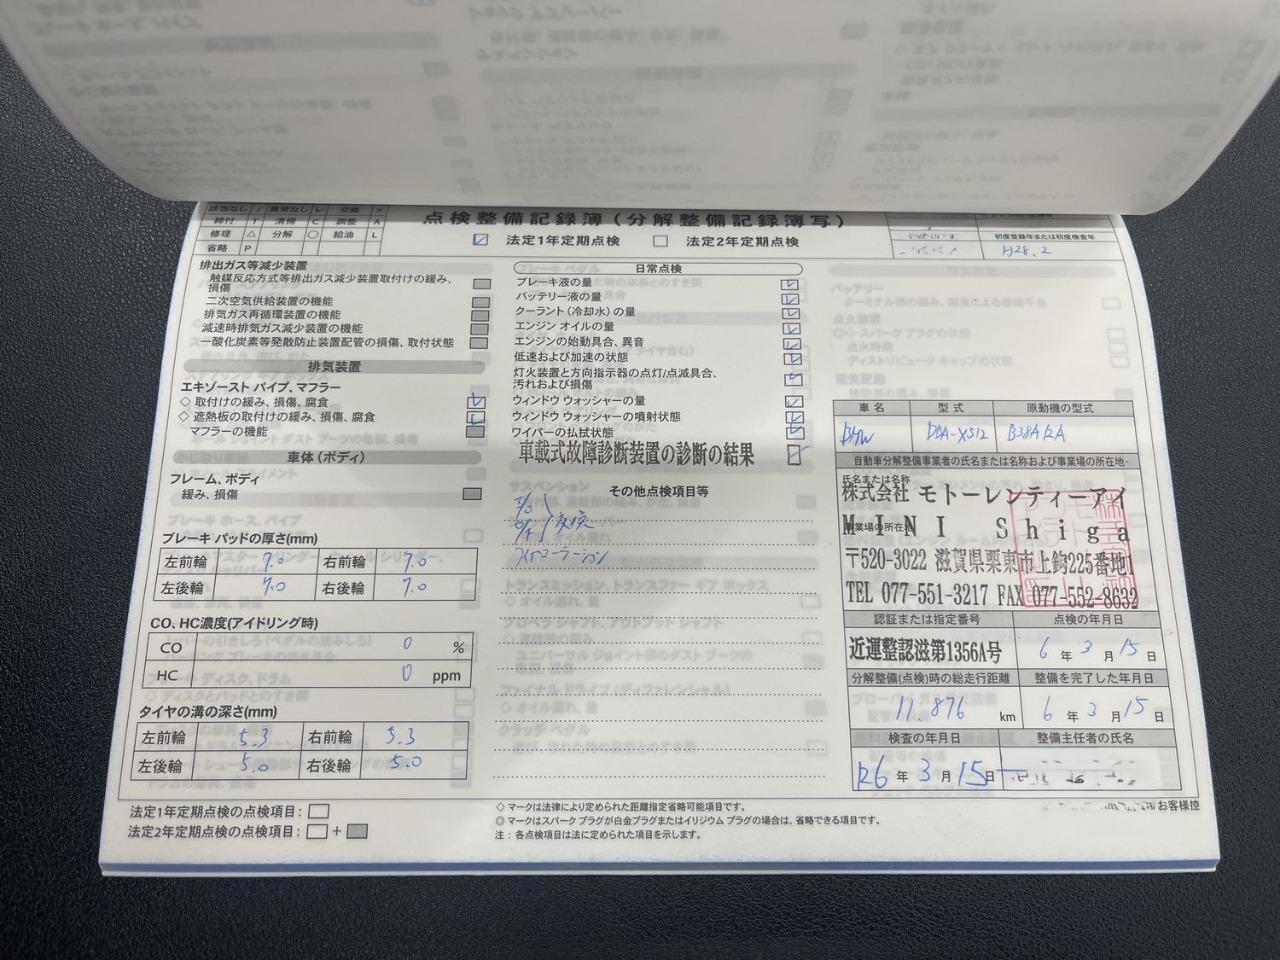 該当なし / 異常なし レ 交換 ×
締付 T 清掃 C 調整 A
修理 △ 分解 ○ 給油 L
省略 P
点検整備記録簿(分解整備記録簿写)
法定1年定期点検 法定2年定期点検
初度登録年または初度検査年
H28.2
排出ガス等減少装置
触媒反応方式等排出ガス減少装置取付けの緩み、
損傷
二次空気供給装置の機能
排気ガス再循環装置の機能
減速時排気ガス減少装置の機能
一酸化炭素等発散防止装置配管の損傷、取付状態
排気装置
エキゾースト パイプ、マフラー
◇ 取付けの緩み、損傷、腐食
◇ 遮熱板の取付けの緩み、損傷、腐食
マフラーの機能
車体(ボディ)
フレーム、ボディ
緩み、損傷
ブレーキ パッドの厚さ(mm)
左前輪 7.0 右前輪 7.0
左後輪 7.0 右後輪 7.0
CO、HC濃度(アイドリング時)
CO 0 %
HC 0 ppm
タイヤの溝の深さ(mm)
左前輪 5.3 右前輪 5.3
左後輪 5.0 右後輪 5.0
法定1年定期点検の点検項目:
法定2年定期点検の点検項目: +
日常点検
ブレーキ液の量
バッテリー液の量
クーラント(冷却水)の量
エンジン オイルの量
エンジンの始動具合、異音
低速および加速の状態
灯火装置と方向指示器の点灯/点滅具合、
汚れおよび損傷
ウィンドウ ウォッシャーの量
ウィンドウ ウォッシャーの噴射状態
ワイパーの払拭状態
車載式故障診断装置の診断の結果
その他点検項目等
◇ マークは法律により定められた距離指定省略可能項目です。
◎ マークはスパーク プラグが白金プラグまたはイリジウム プラグの場合は、省略できる項目です。
注:各点検項目は法に定められた項目を示します。
車名 型式 原動機の型式
BMW DBA-XS12 B38A12A
自動車分解整備事業者の氏名または名称および事業場の所在地
氏名または名称
株式会社 モトーレンティーアイ
事業場の所在地
MINI Shiga
〒520-3022 滋賀県栗東市上鈎225番地1
TEL 077-551-3217 FAX 077-552-8632
認証または指定番号 点検の年月日
近運整認滋第1356A号 6年3月15日
分解整備(点検)時の総走行距離 整備を完了した年月日
11,876 km 6年3月15日
検査の年月日 整備主任者の氏名
R6年3月15日
お客様控